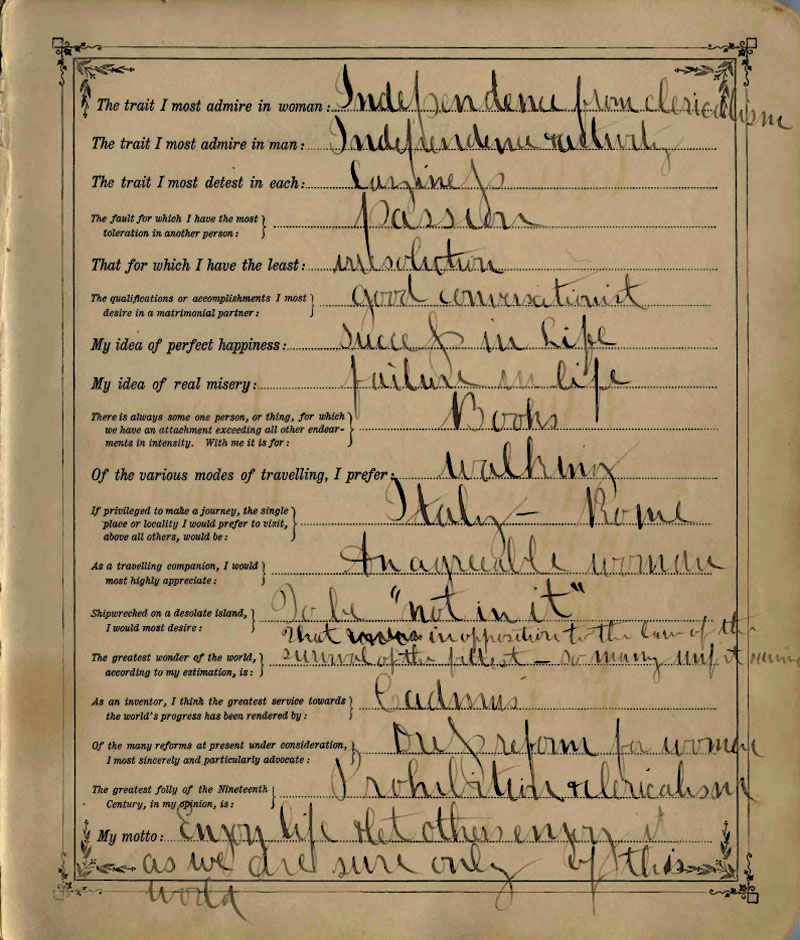 The trait I most admire in woman: Independence from clericalism
The trait I most admire in man: Independence & activity
The trait I most detest in each: Laziness
The fault for which I have the most
toleration in another person: } passion
That for which I have the least: irresolution
The qualifications or accomplishments I most
desire in a matrimonial partner: } good conversationist
My idea of perfect happiness: success in Life
My idea of real misery: failure in life
There is always some one person, or thing, for which
we have an attachment exceeding all other endear-
ments in intensity. With me it is for: } Books
Of the various modes of travelling, I prefer: walking
If privileged to make a journey, the single
place or locality I would prefer to visit,
above all others, would be: } Italy – Rome
As a travelling companion, I would
most highly appreciate: } An agreeable woman
Shipwrecked on a desolate island,
I would most desire: } To be "not in it"
That in opposition to the law of the
The greatest wonder of the world,
according to my estimation, is: } survival of the fittest – so many unfit
As an inventor, I think the greatest service towards
the world's progress has been rendered by: } Cadmus
Of the many reforms at present under consideration,
I most sincerely and particularly advocate: } Dress reform for women
The greatest folly of the Nineteenth
Century, in my opinion, is: } Prohibition & clericalism
My motto: Enjoy life & let others enjoy it
as we are sure only of this
world